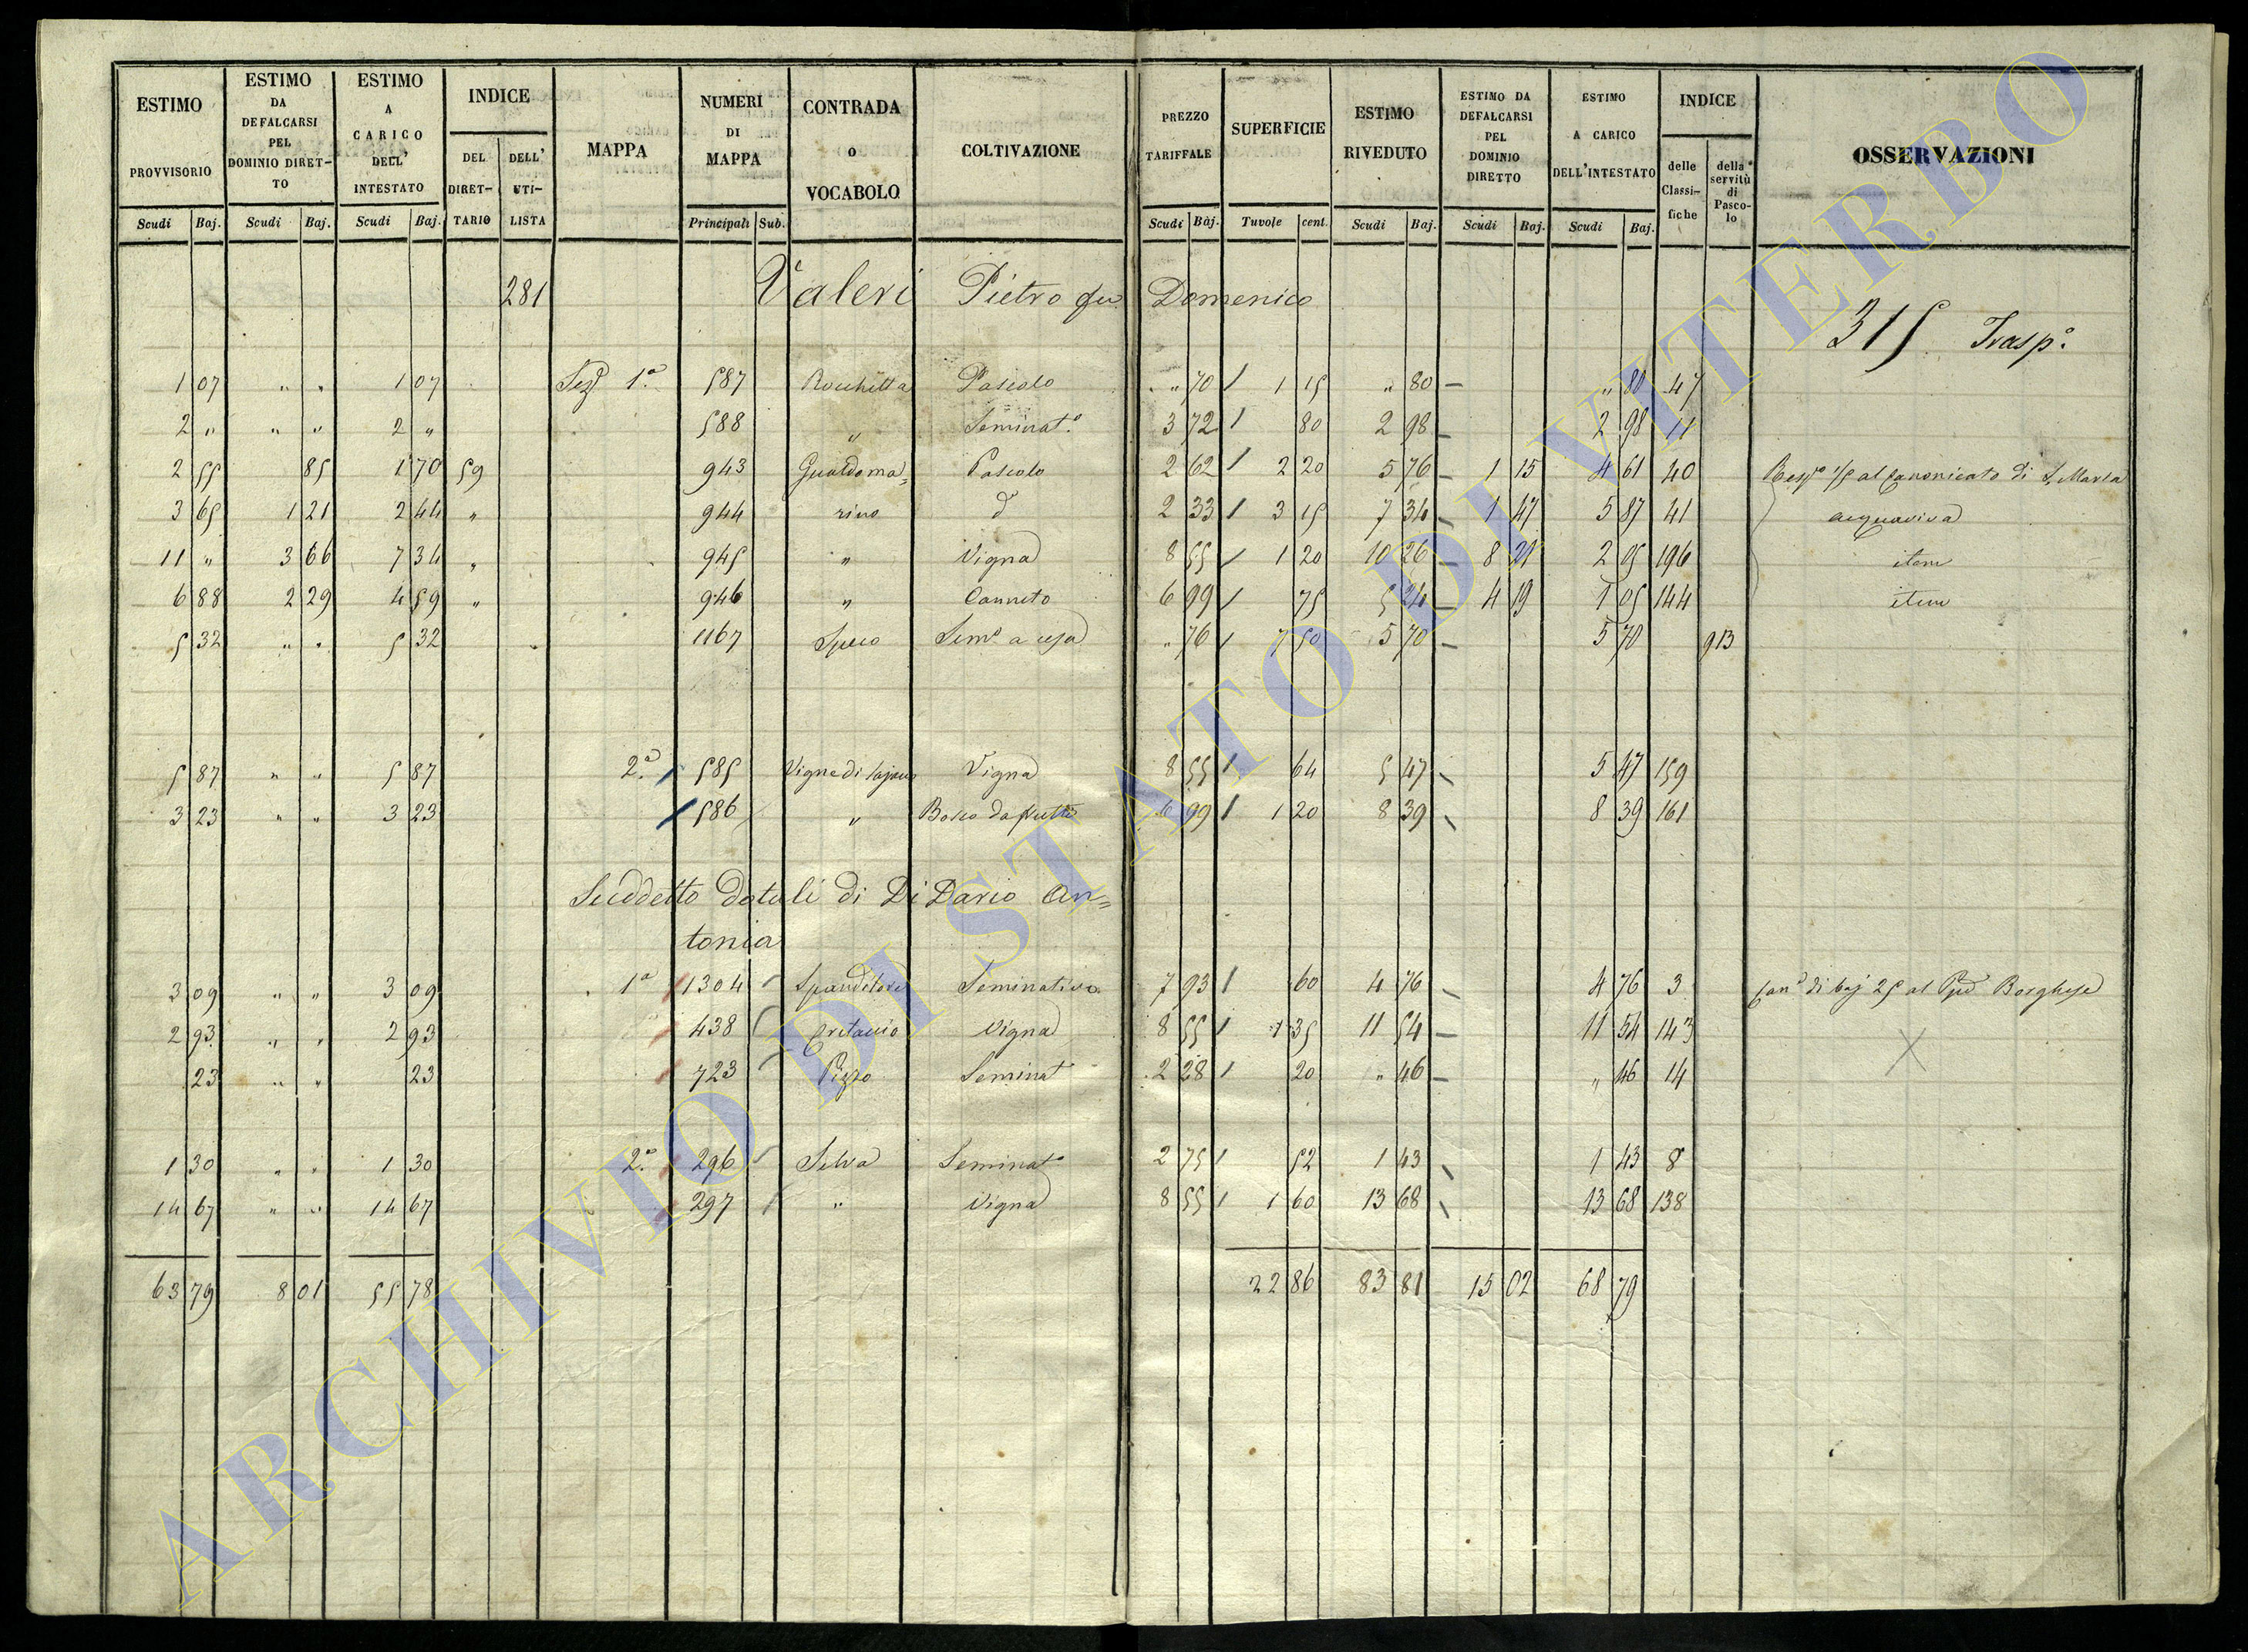 ESTIMO PROVVISORIO | ESTIMO DA DEFALCARSI PEL DOMINIO DIRET-TO | ESTIMO A CARICO DELL' INTESTATO | INDICE DEL DIRET-TARIO | DELL' UTI-LISTA | MAPPA | NUMERI DI MAPPA | CONTRADA O VOCABOLO | COLTIVAZIONE | PREZZO TARIFFALE | SUPERFICIE | ESTIMO RIVEDUTO | ESTIMO DA DEFALCARSI PEL DOMINIO DIRETTO | ESTIMO A CARICO DELL'INTESTATO | INDICE delle Classi-fiche | della servitù di Pasco-lo | OSSERVAZIONI
Scudi | Baj. | Scudi | Baj. | Scudi | Baj. | Principali | Sub. | Scudi | Baj. | Tavole | cent. | Scudi | Baj. | Scudi | Baj. | Scudi | Baj.
281 Valeri Pietro fu Domenico
315 Trasp.º
1 07 " " 1 07 Sezº 1.ª 587 Rocchetta Pascolo " 70 1 15 " 80 — " 80 47
2 " " " 2 " 588 " Seminat.º 3 72 80 2 98 — 2 98 11
2 55 85 1 70 59 943 Gualdoma= Pascolo 2 62 2 20 5 76 — 1 15 4 61 40 Respº 1/5 al Canonicato di S. Maria
3 65 1 21 2 44 " 944 rino dº 2 33 3 15 7 34 — 1 47 5 87 41 acquaviva
11 " 3 66 7 34 " 945 " Vigna 8 55 1 20 10 26 — 8 21 2 05 196 item
6 88 2 29 4 59 " 946 " Canneto 6 99 75 5 24 — 4 19 1 05 144 item
5 32 " " 5 32 1167 Speco Semº a " 76 7 50 5 70 — 5 70 913
5 87 " " 5 87 2.ª 585 Vigne di Vigna 8 55 64 5 47 5 47 159
3 23 " " 3 23 586 " Bosco da frutto 6 99 1 20 8 39 8 39 161
Suddetto dotali di Di Dario An=
tonia
3 09 " " 3 09 1ª 1304 Seminativo 7 93 60 4 76 4 76 3 Canº di baj 25 al Borghese
2 93 " " 2 93 438 Vigna 8 55 1 35 11 54 — 11 54 143
23 " " 23 723 Pizzo Seminat 2 28 20 " 46 — " 46 14
1 30 " " 1 30 2.ª 296 Selva Seminatº 2 75 52 1 43 1 43 8
14 67 " " 14 67 297 " Vigna 8 55 1 60 13 68 13 68 138
63 79 8 01 55 78 22 86 83 81 15 02 68 79
ARCHIVIO DI STATO DI VITERBO